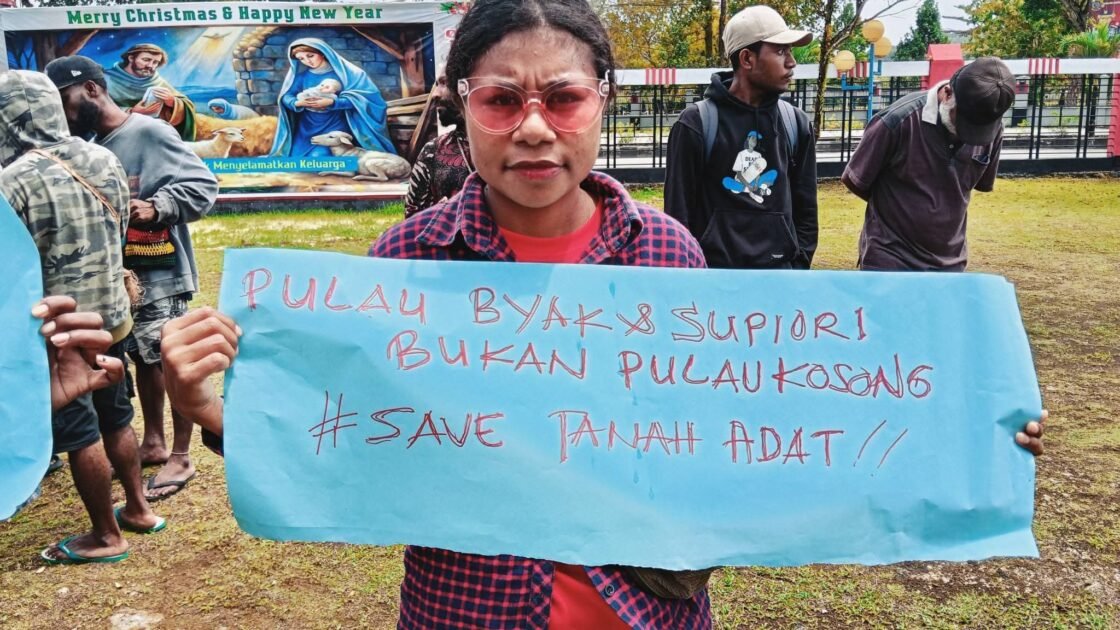 Merry Christmas & Happy New Year
Menyelamatkan Keluarga
PULAU BYAK & SUPIORI
BUKAN PULAU KOSONG
#SAVE TANAH ADAT!!